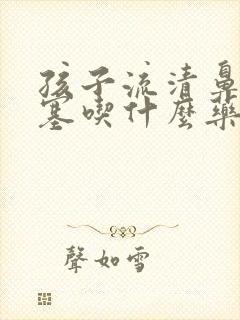 孩子流清鼻
塞喫什麼藥
聲如雪